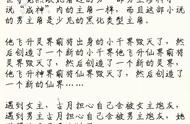 说"成神"内的主角一样，而且这部小
说的男主角是少见的黑化类型主角。
他飞升灵界前将出身的小千界毁灭了，然
后创造了一个新的小千界他飞升仙界前将
灵界毁灭了，然后创造了一个新的灵界……
他飞升神界前将仙界毁灭了，然后创造了
一个新的仙界……
遇到女主，古月担心自己会被女主炮灰，
遇到男主，古月担心自己会被男主炮灰，她